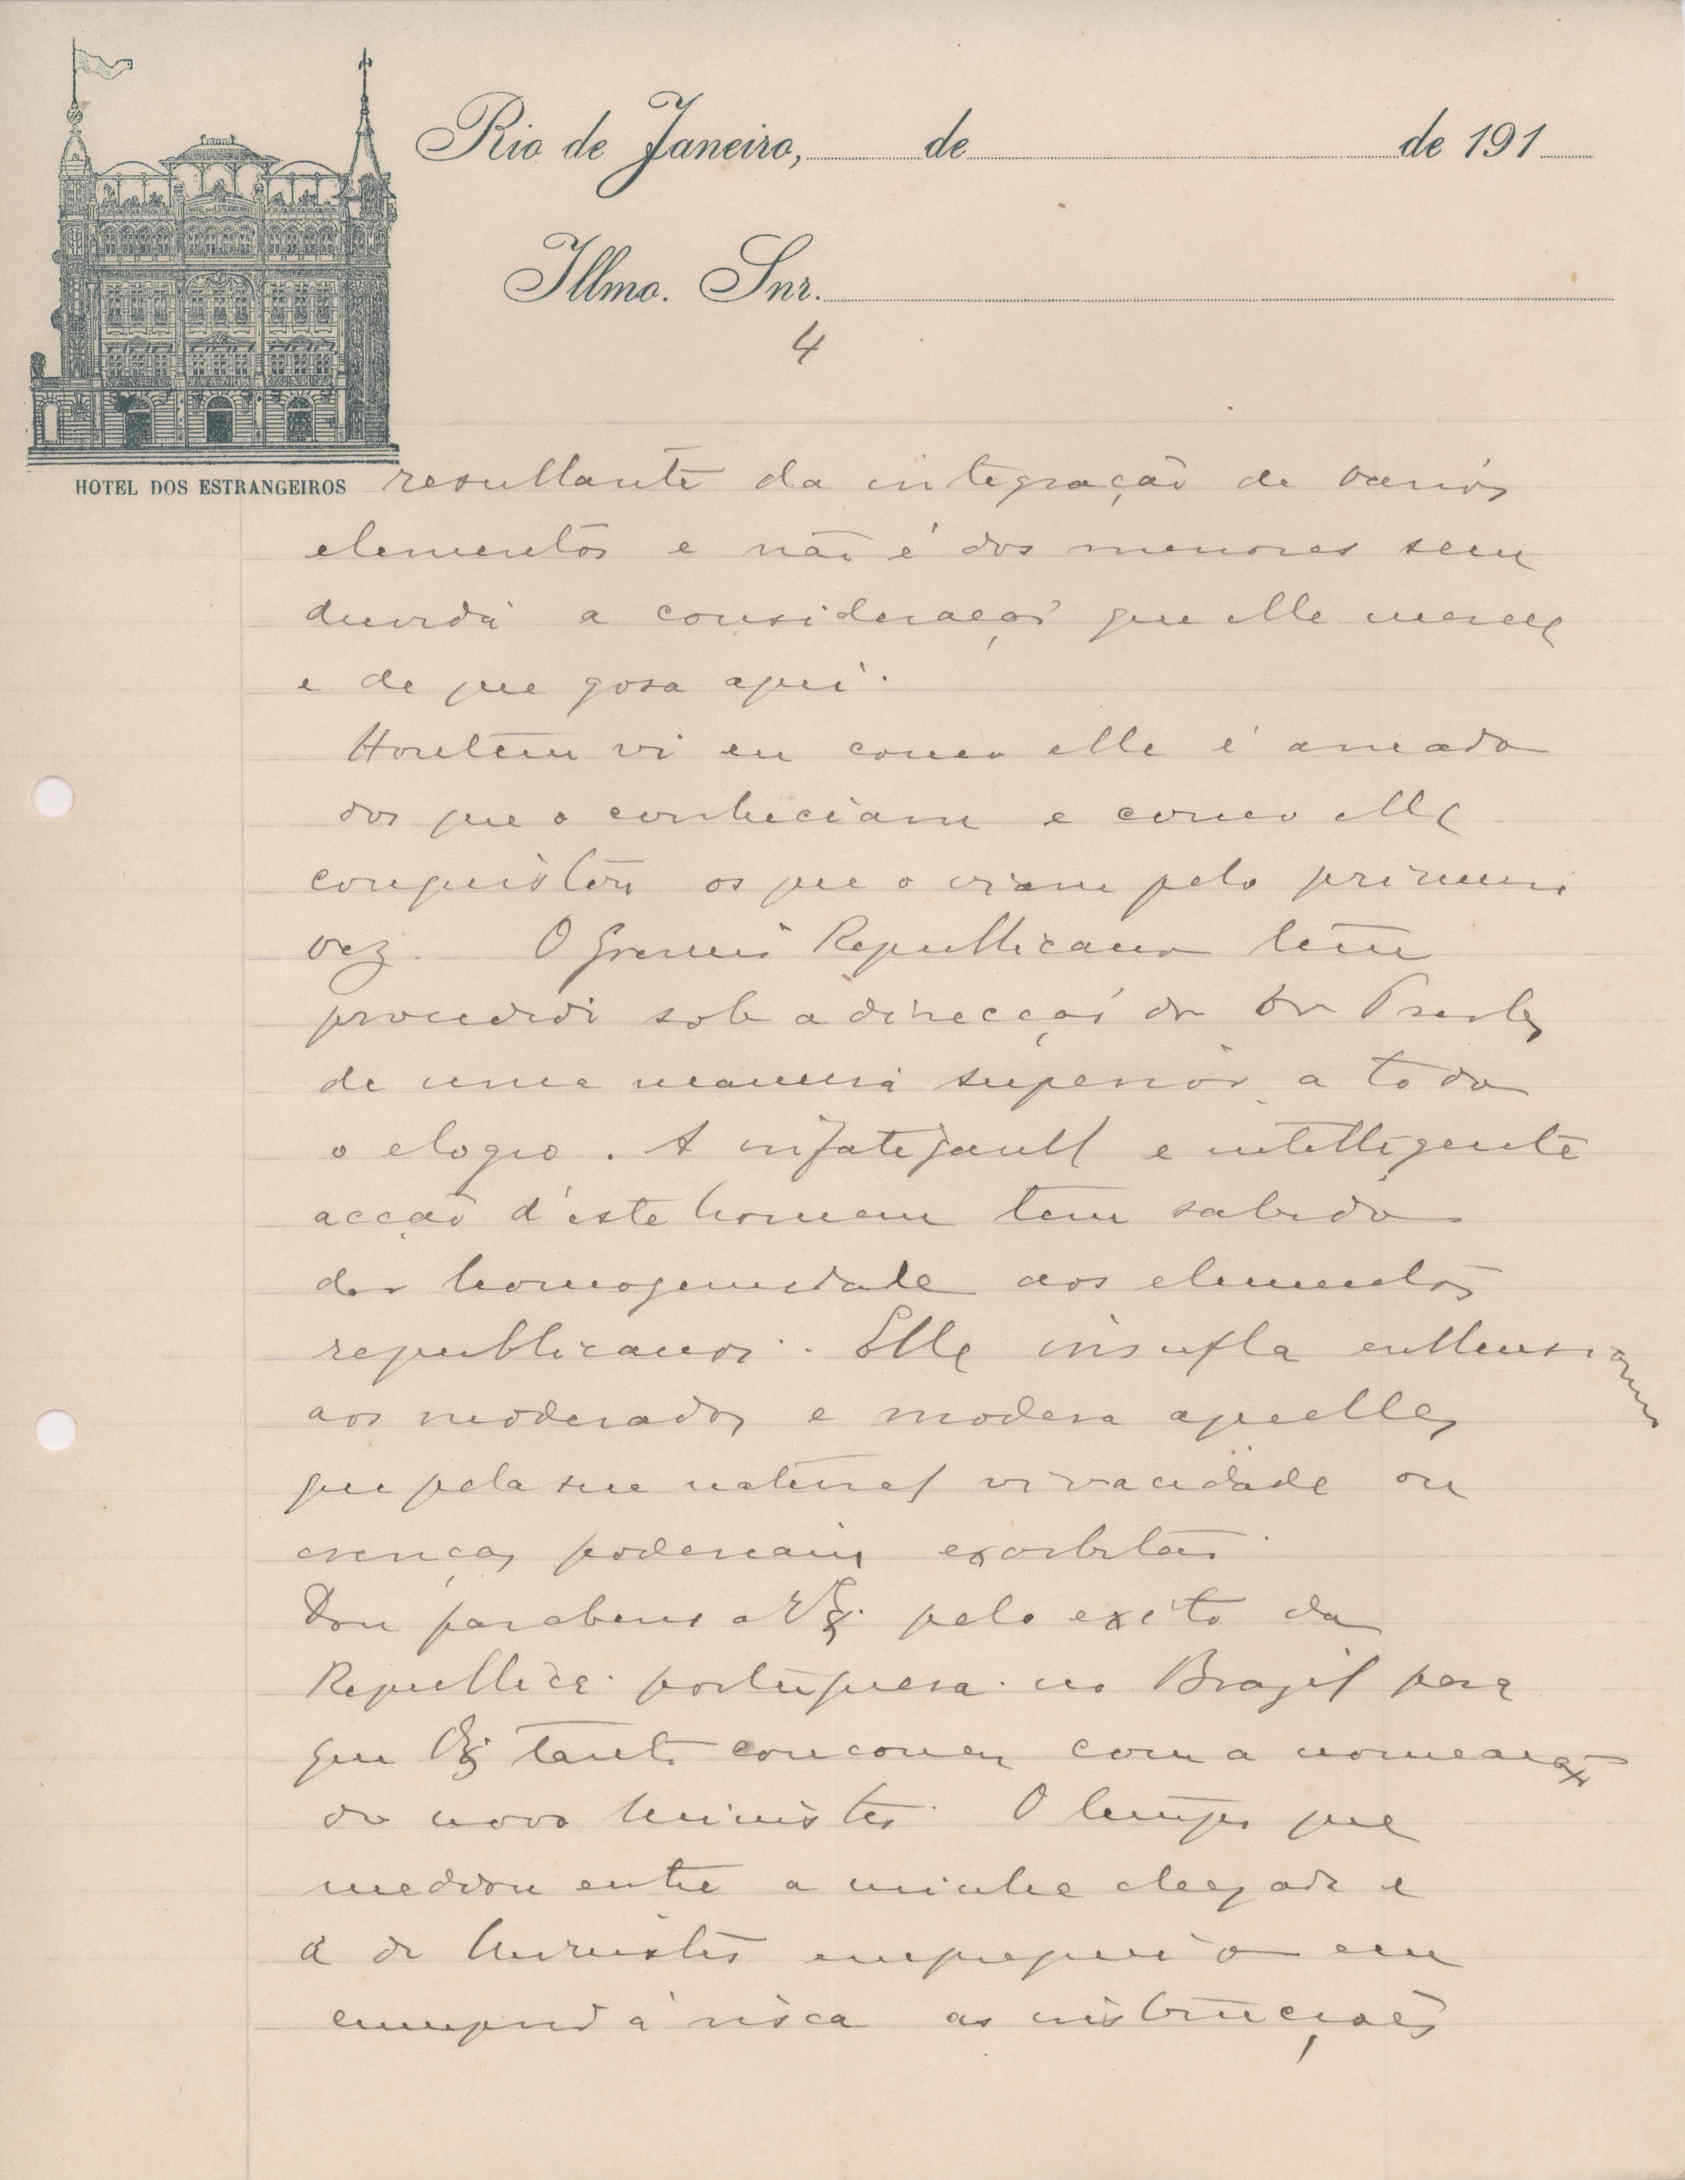 Rio de Janeiro, de de 191
Illmo. Snr.
4
HOTEL DOS ESTRANGEIROS
resultante da integração de varios
elementos e não é dos menores sem
duvida a consideração que elle merece
e de que gosa aqui.
Hontem vi eu como elle é amado
dos que o conheciam e como elle
conquistou os que o viam pela primeira
vez. O Gremio Republicano tem
procedido sob a direcção do Dr
de uma maneira superior a todo
o elogio. A infatigavel e intelligente
acção d'este homem tem sabido
dar homogeneidade aos elementos
republicanos. Elle insufla enthusiasmo
aos moderados e modera aquelles
que pela sua natural vivacidade ou
crenças poderiam exorbitar.
Dou parabens a V. Ex. pelo exito da
Republica portuguesa no Brazil para
que V. Ex. tanto concorreu com a nomeação
do novo Ministro. O tempo que
mediou entre a minha chegada e
a do Ministro empreguei-o em
cumprir á risca as instrucções